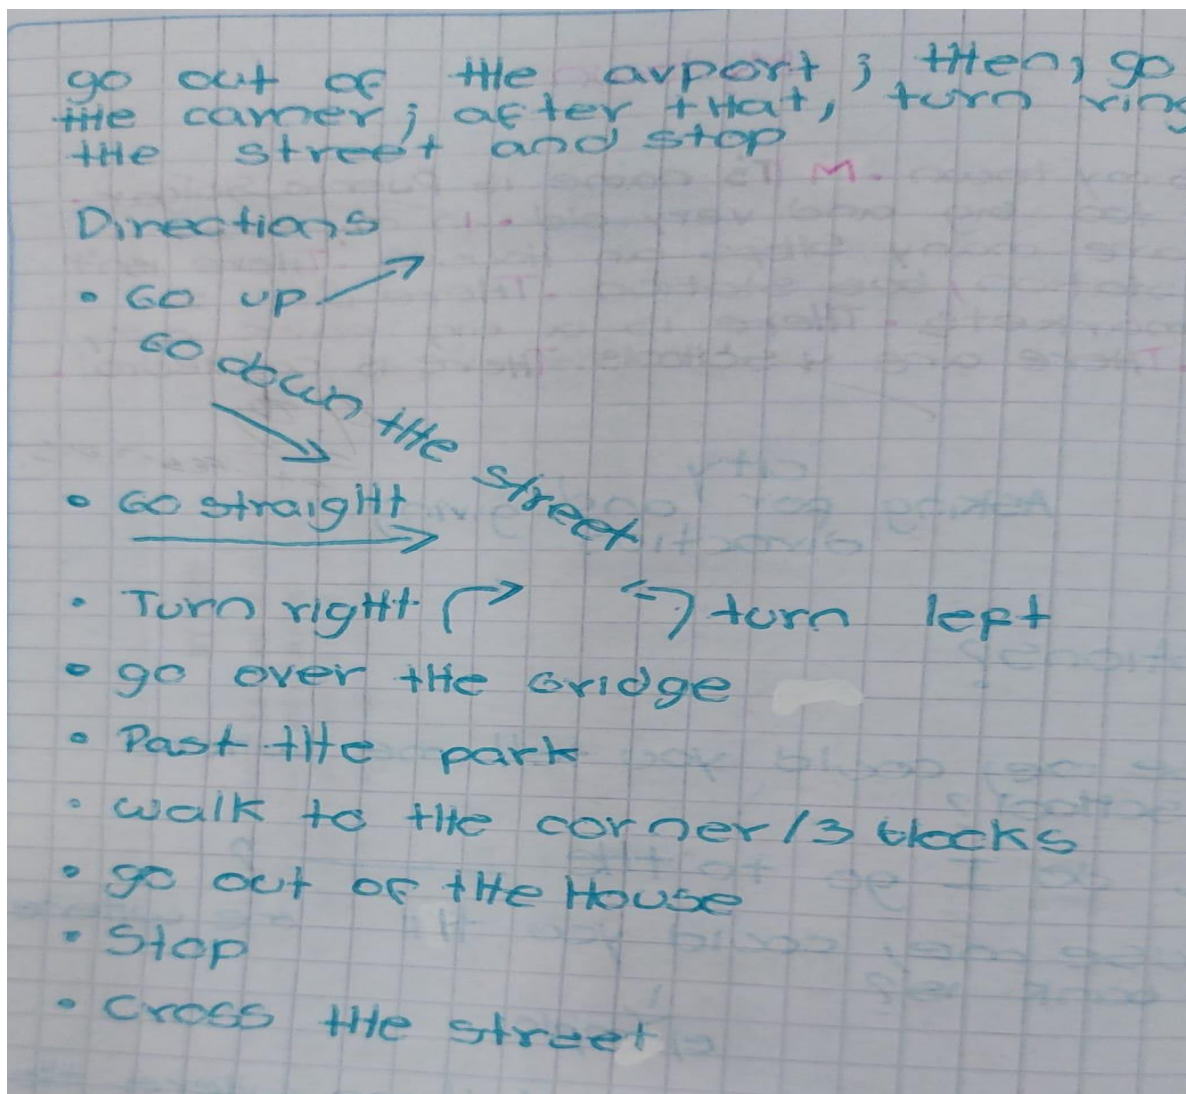 go out of the airport ; then, go
the corner ; after that, turn ring
the street and stop
Directions
• Go up
Go down the street
• Go straight
• Turn right turn left
• go over the bridge
• Past the park
• walk to the corner / 3 blocks
• go out of the House
• Stop
• Cross the street